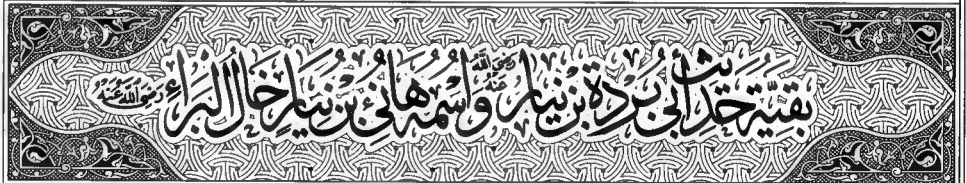 بَقِيَّة حَديث أَبي بُرْدَة بْن نِيَار رَضِيَ اللهُ عَنْهُ وَاسْمُهُ هَانِئُ بْنُ نِيَارٍ خَالُ الْبَرَاءِ رَضِيَ اللهُ عَنْهُ